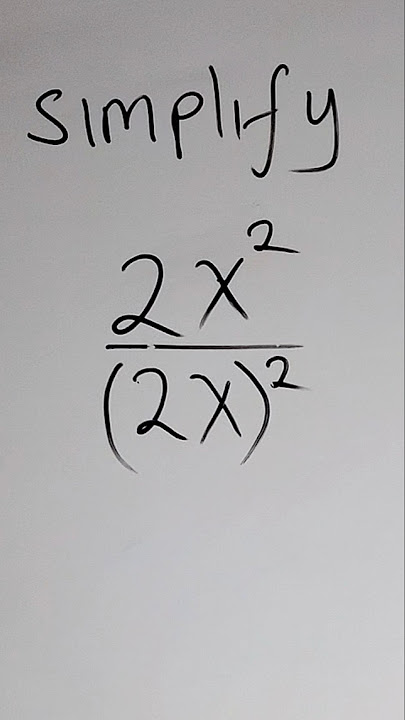 simplify
2x²
(2x)²